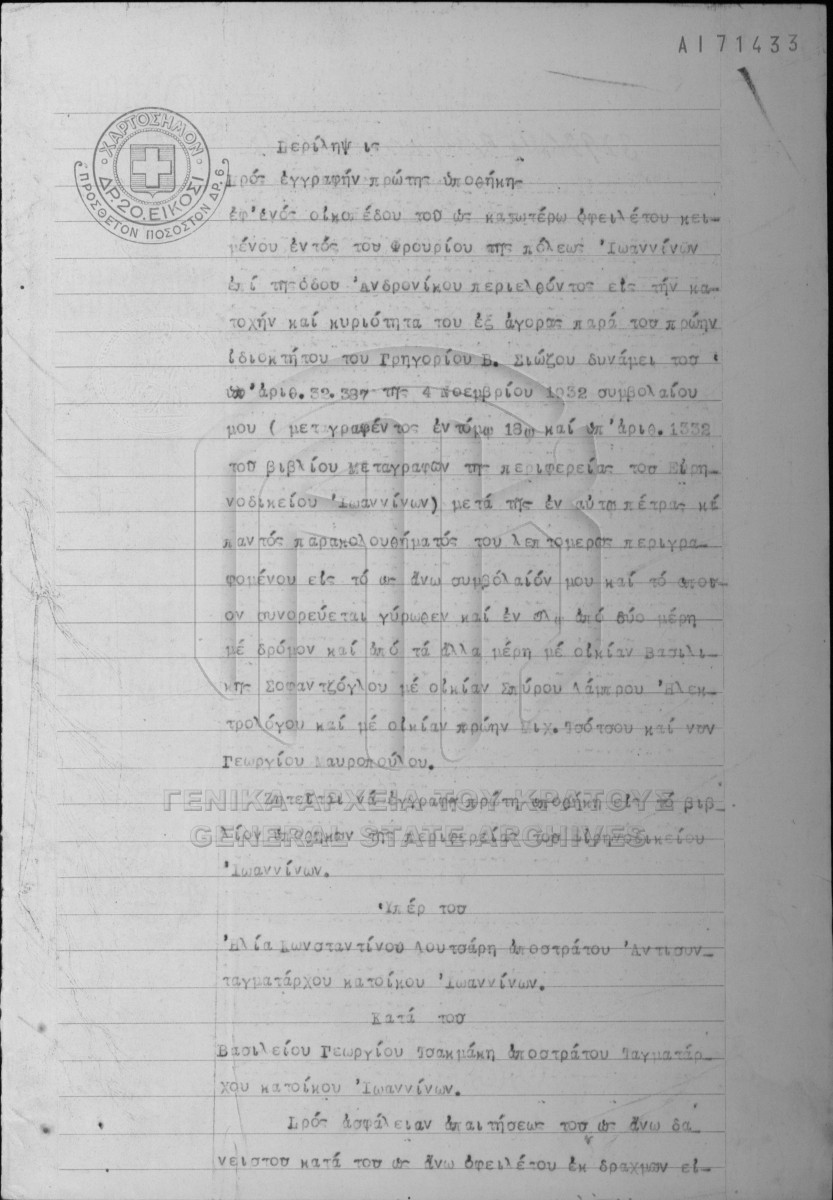 ΑΙ 71433
ΧΑΡΤΟΣΗΜΟΝ
ΔΡ. 20. ΕΙΚΟΣΙ
ΠΡΟΣΘΕΤΟΝ ΠΟΣΟΣΤΟΝ ΔΡ. 6.
Περίληψις
Πρός ἐγγραφήν πρώτης ὑποθήκης
ἐφ'ἑνός οἰκοπέδου τοῦ ὡς κατωτέρω ὀφειλέτου κει-
μένου ἐντός τοῦ Φρουρίου τῆς πόλεως Ἰωαννίνων
ἐπί τῆς ὁδοῦ Ἀνδρονίκου περιελθόντος εἰς τήν κα-
τοχήν καί κυριότητα του ἐξ ἀγορᾶς παρά τοῦ πρώην
ἰδιοκτήτου του Γρηγορίου Β. Σιώζου δυνάμει τοῦ
ὑπ'ἀριθ. 32.387 τῆς 4 Νοεμβρίου 1932 συμβολαίου
μου ( μεταγραφέντος ἐν τόμῳ 18ῳ καί ὑπ'ἀριθ. 1332
τοῦ βιβλίου μεταγραφῶν τῆς περιφερείας τοῦ Εἰρη-
νοδικείου Ἰωαννίνων) μετά τῆς ἐν αὐτῷ πέτρας κέ
παντός παρακολουθήματός του λεπτομερῶς περιγρα-
φομένου εἰς τό ὡς ἄνω συμβόλαιόν μου καί τό ὁποῖ-
ον συνορεύεται γύρωθεν καί ἐν ὅλῳ ἀπό δύο μέρη
μέ δρόμον καί ἀπό τά ἄλλα μέρη μέ οἰκίαν Βασιλι-
κῆς Σοφαντζόγλου μέ οἰκίαν Σπύρου Λάμπρου Ἠλεκ-
τρολόγου καί μέ οἰκίαν πρώην Μιχ. Τσότσου καί νῦν
Γεωργίου Μαυροπούλου.
Ζητεῖται νά ἐγγραφῇ πρώτη ὑποθήκη εἰς τό βιβ-
λίον ὑποθηκῶν τῆς περιφερείας τοῦ Εἰρηνοδικείου
Ἰωαννίνων.
Ὑπέρ τοῦ
Ἠλία Κωνσταντίνου Λουτσάρη ἀποστράτου Ἀντισυν-
ταγματάρχου κατοίκου Ἰωαννίνων.
Κατά τοῦ
Βασιλείου Γεωργίου Τσακμάκη ἀποστράτου Ταγματάρ-
χου κατοίκου Ἰωαννίνων.
Πρός ἀσφάλειαν ἀπαιτήσεως τοῦ ὡς ἄνω δα-
νειστοῦ κατά τοῦ ὡς ἄνω ὀφειλέτου ἐκ δραχμῶν εἴ-
ΓΕΝΙΚΑ ΑΡΧΕΙΑ ΤΟΥ ΚΡΑΤΟΥΣ
GENERAL STATE ARCHIVES